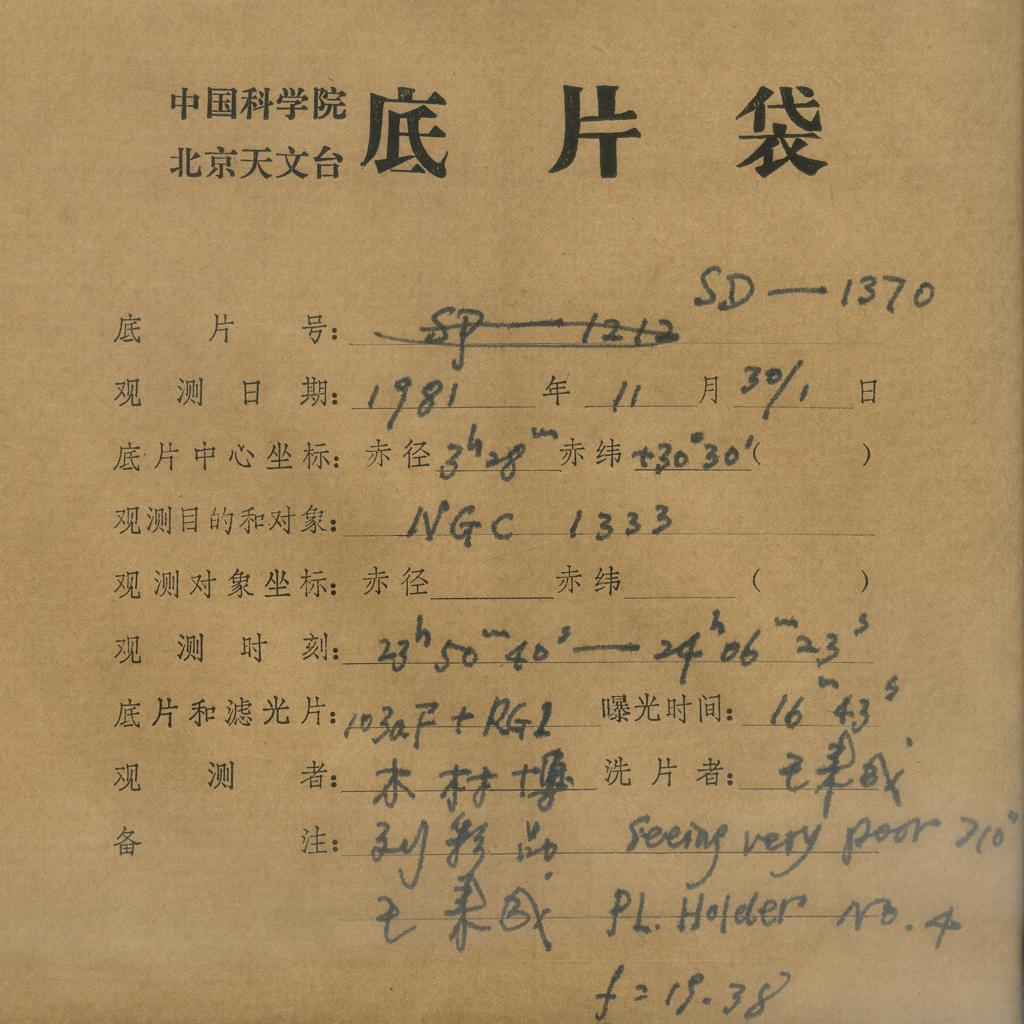 中国科学院
北京天文台
底片袋
SD—1370
底片号: SP—1212
观测日期: 1981年11月30/1日
底片中心坐标: 赤径3h28m赤纬+30°30′( )
观测目的和对象: NGC 1333
观测对象坐标: 赤径 赤纬 ( )
观测时刻: 23h50m40s—24h06m23s
底片和滤光片: 103aF+RG1 曝光时间: 16m43s
观测者: 木村博 洗片者: 王
备注: 刘彩品 Seeing very poor >10"
王 PL. Holder No. 4
f=19.38